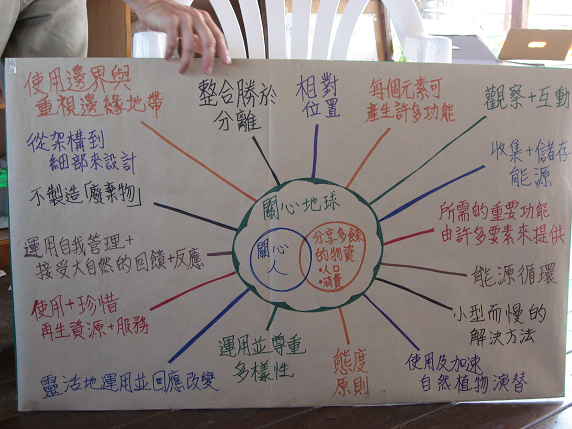 使用邊界與
重視邊緣地帶
整合勝於
分離
相對
位置
每個元素可
產生許多功能
觀察+互動
從架構到
細部來設計
收集+儲存
能源
不製造「廢棄物」
關心地球
關心
人
分享多餘
的物資
•人口
•消費
所需的重要功能
由許多要素來提供
運用自我管理+
接受大自然的回饋+反應
能源循環
使用+珍惜
再生資源+服務
小型而慢的
解決方法
靈活地運用並回應改變
運用並尊重
多樣性
態度
原則
使用及加速
自然植物演替